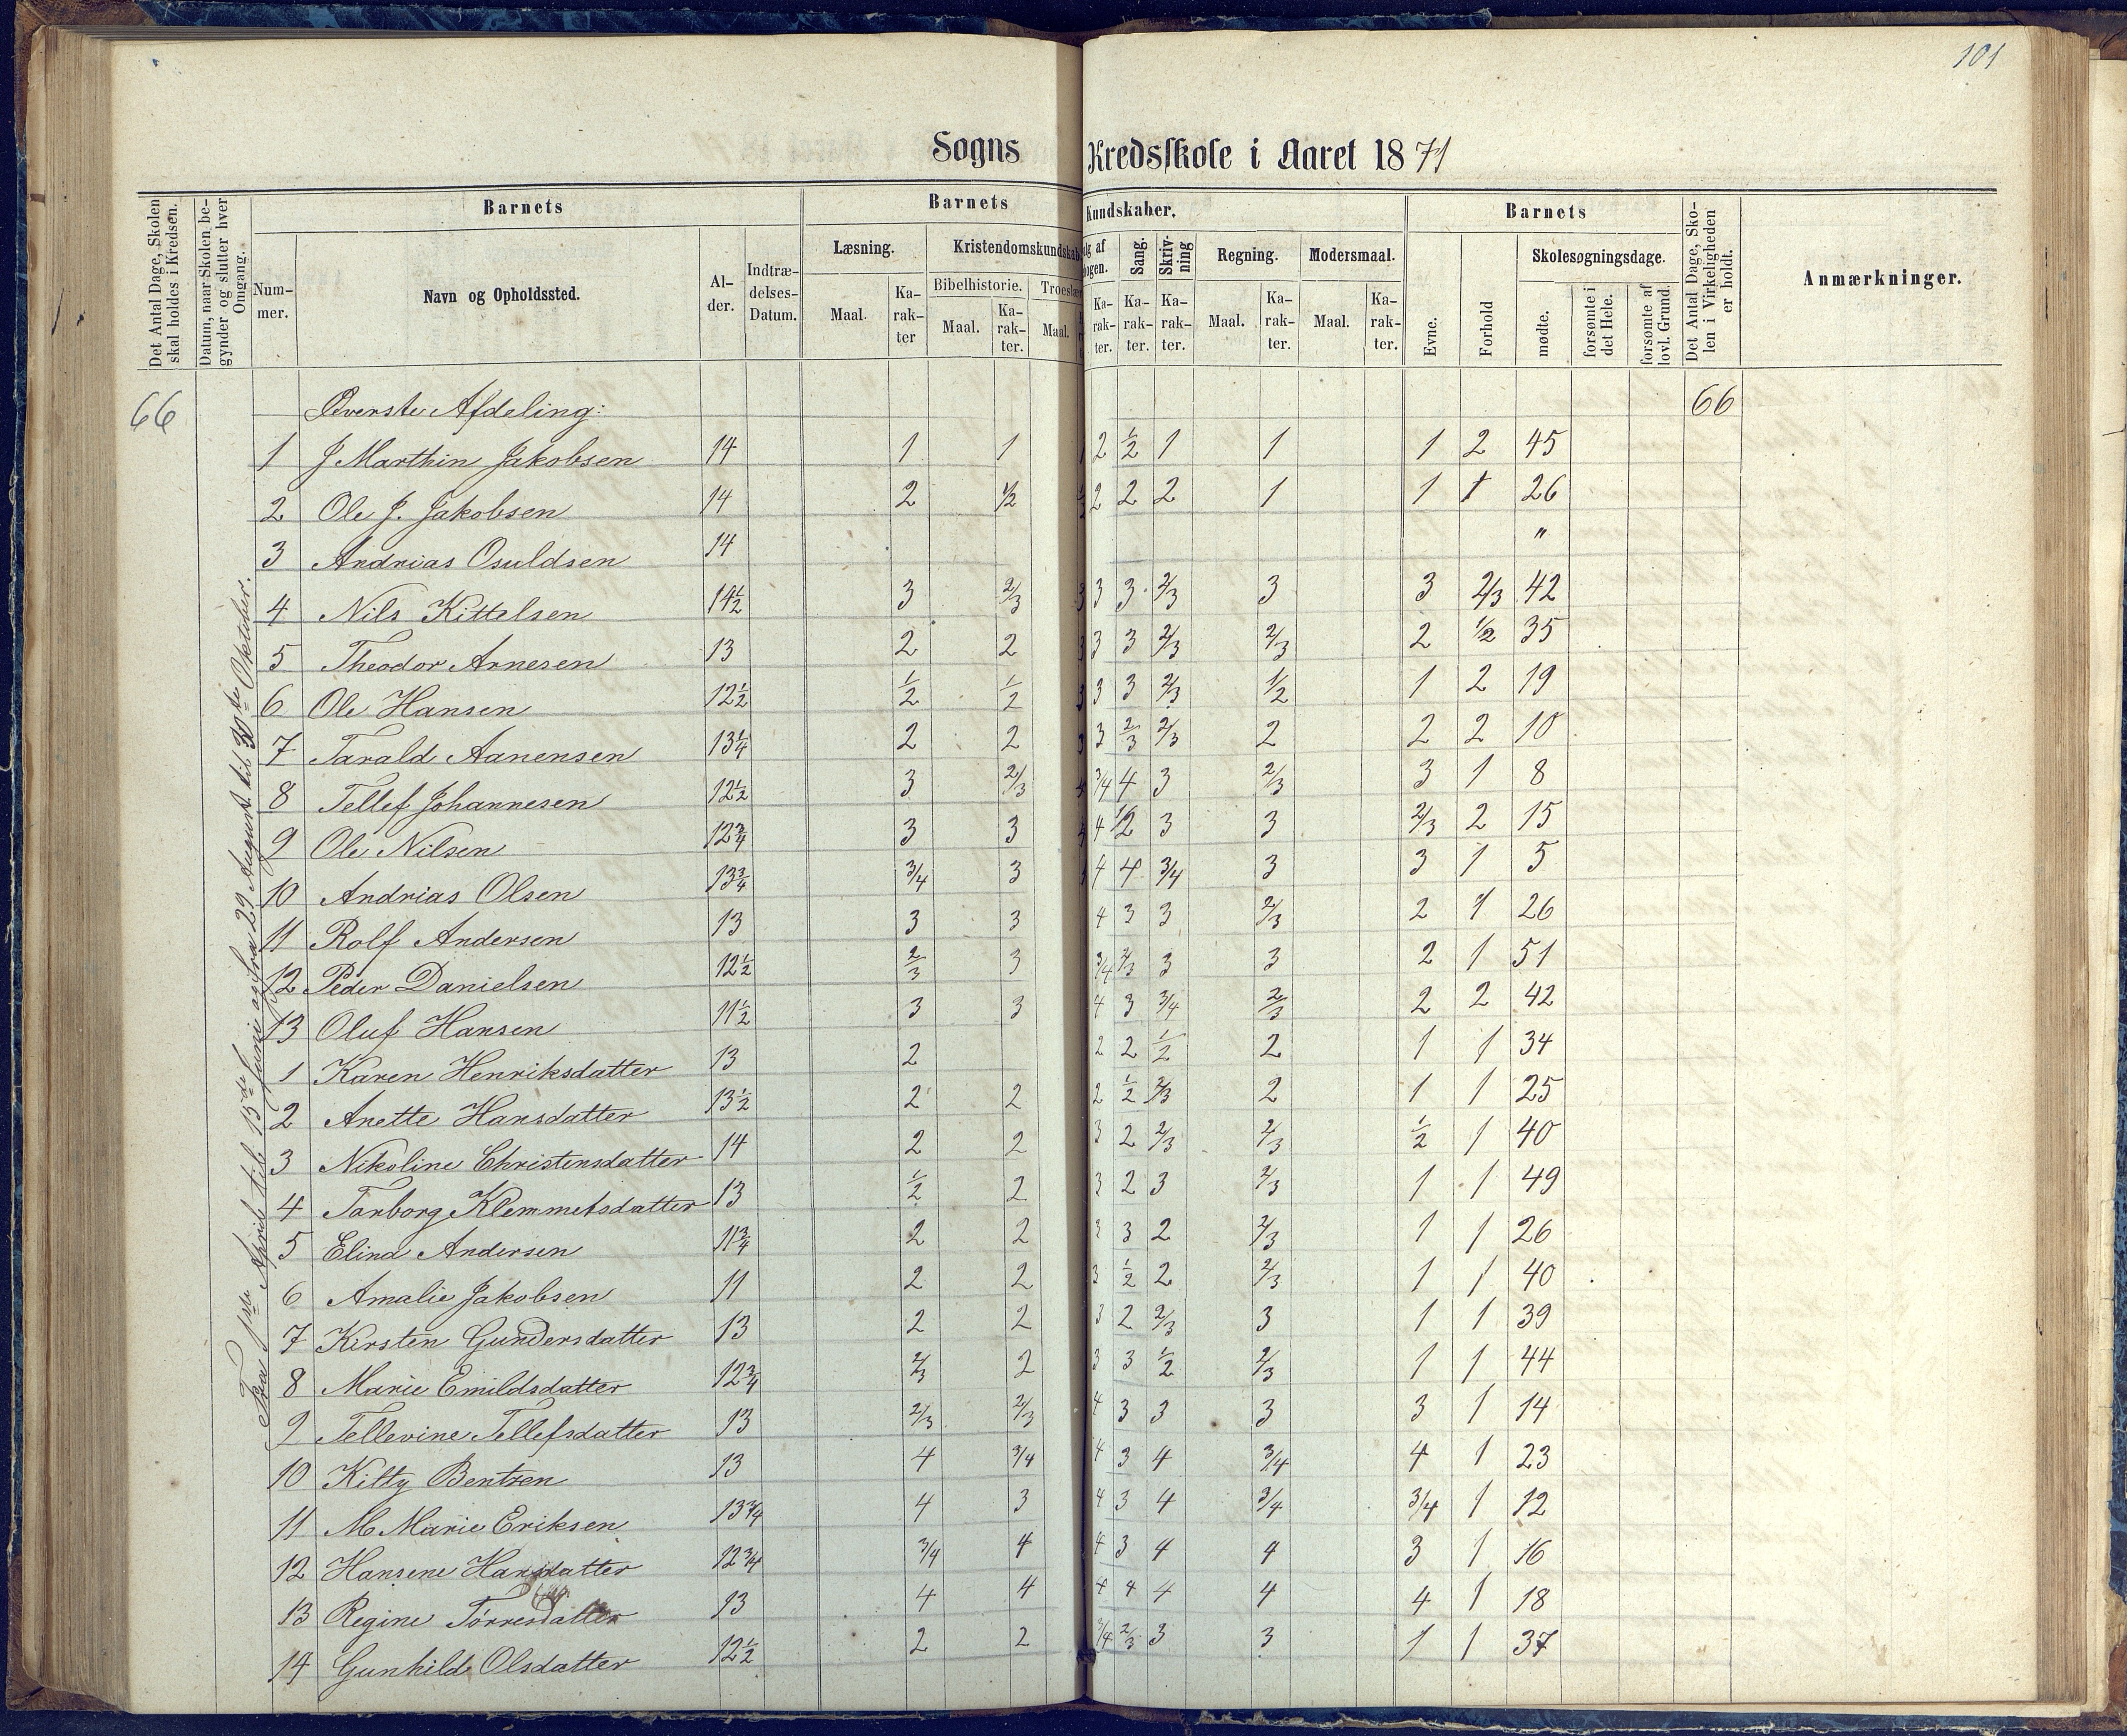 101
Sogns Kredsskole i Aaret 1871
Det Antal Dage, Skolen skal holdes i Kredsen.
Datum, naar Skolen begynder og slutter hver Omgang.
Barnets
Barnets Kundskaber.
Barnets
Det Antal Dage, Skolen i Virkeligheden er holdt.
Anmærkninger.
Nummer.
Navn og Opholdssted.
Alder.
Indtrædelses-Datum.
Læsning.
Kristendomskundskab
Sang.
Skrivning
Regning.
Modersmaal.
Evne.
Forhold
Skolesøgningsdage.
Bibelhistorie.
Maal. Karakter Maal. Karakter. Maal. Karakter. Karakter. Karakter. Maal. Karakter. Maal. Karakter.
mødte.
forsømte i det Hele.
forsømte af lovl. Grund.
Fra 1ste April til 15de Junii og fra 29 August til 30te Oktober.
66 Øverste Afdeling: 66
1 J Marthin Jakobsen 14 1 1 1 2 1/2 1 1 1 2 45
2 Ole J. Jakobsen 14 2 1/2 1/2 2 2 2 1 1 1 26
3 Andrias Osuldsen 14 "
4 Nils Kittelsen 14 1/2 3 2/3 3 3 3 2/3 3 3 2/3 42
5 Theodor Arnesen 13 2 2 3 3 3 2/3 2/3 2 1/2 35
6 Ole Hansen 12 1/2 1/2 1/2 3 3 3 2/3 1/2 1 2 19
7 Tarald Aanensen 13 1/4 2 2 3 3 2/3 2/3 2 2 2 10
8 Tellef Johannesen 12 1/2 3 2/3 4 3/4 4 3 2/3 3 1 8
9 Ole Nilsen 12 3/4 3 3 4 4 1/2 3 3 2/3 2 15
10 Andrias Olsen 13 3/4 3/4 3 4 4 3/4 3 3 1 5
11 Rolf Andersen 13 3 3 4 3 3 2/3 2 1 26
12 Peder Danielsen 12 1/2 2/3 3 3/4 2/3 3 3 2 1 51
13 Oluf Hansen 11 1/2 3 3 4 3 3/4 2/3 2 2 42
1 Karen Henriksdatter 13 2 2 2 1/2 2 1 1 34
2 Anette Hansdatter 13 1/2 2 2 2 1/2 2/3 2 1 1 25
3 Nikoline Christensdatter 14 2 2 3 2 2/3 2/3 1/2 1 40
4 Tarborg Klemmetsdatter 13 1/2 2 3 2 3 2/3 1 1 49
5 Elina Andersen 11 3/4 2 2 3 3 2 2/3 1 1 26
6 Amalie Jakobsen 11 2 2 3 1/2 2 2/3 1 1 40
7 Kirsten Gundersdatter 13 2 2 3 2 2/3 3 1 1 39
8 Marie Emildsdatter 12 3/4 2/3 2 3 3 1/2 2/3 1 1 44
9 Tellevine Tellefsdatter 13 2/3 2/3 4 3 3 3 3 1 14
10 Kitty Bentzen 13 4 3/4 4 3 4 3/4 4 1 23
11 M Marie Eriksen 13 3/4 4 3 4 3 4 3/4 3/4 1 12
12 Hansene Hansdatter 12 3/4 3/4 4 4 3 4 4 3 1 16
13 Regine Tørresdatter 13 4 4 4 4 4 4 4 1 18
14 Gunhild Olsdatter 12 1/2 2 2 3/4 2/3 3 3 1 1 37